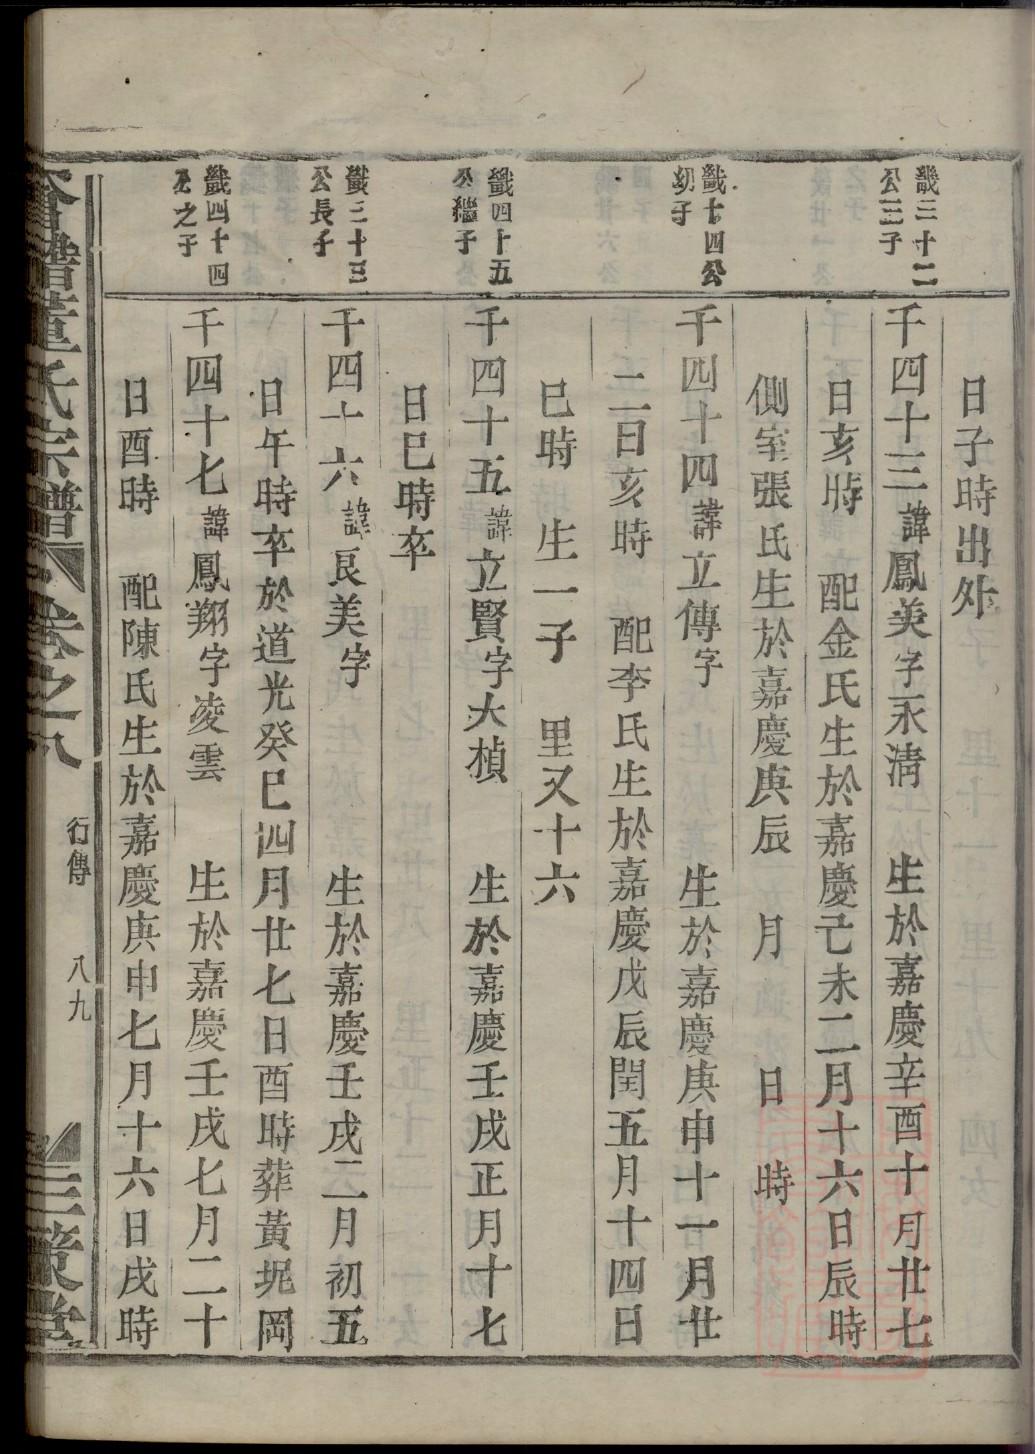 日子時出外
畿三十二
公三子
千四十三諱鳳美字永清 生於嘉慶辛酉十月廿七
日亥時 配金氏生於嘉慶己未二月十六日辰時
側室張氏生於嘉慶庚辰 月 日 時
畿十四公
幼子
千四十四諱立傳字 生於嘉慶庚申十一月廿
二日亥時 配李氏生於嘉慶戊辰閏五月十四日
巳時 生一子 里又十六
畿四十五
公繼子
千四十五諱立賢字大楨 生於嘉慶壬戌正月十七
日巳時卒
畿三十三
公長子
千四十六諱良美字 生於嘉慶壬戌二月初五
日午時卒於道光癸巳四月廿七日酉時葬黃坭岡
畿四十四
公之子
千四十七諱鳳翔字凌雲 生於嘉慶壬戌七月二十
日酉時 配陳氏生於嘉慶庚申七月十六日戌時
譜董氏宗譜 卷之八 行傳 八九 三策堂